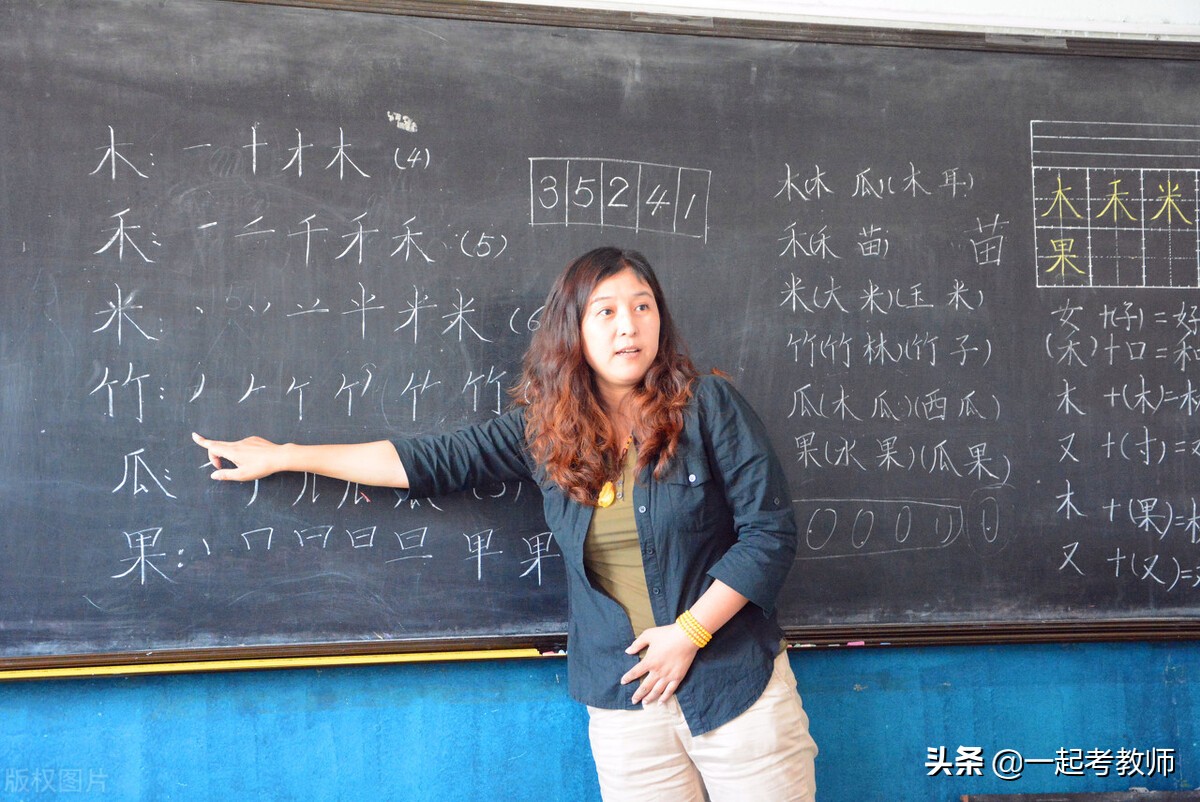 木: 一 十 才 木 (4)
禾: 一 二 千 禾 禾 (5)
米: 丶 丷 䒑 半 米 米 (6
竹: 丿 𠂉 竹
瓜:
果: 丨 冂 曰 日 旦 早 果
3 5 2 4 1
木(木 瓜)(木 耳)
禾(禾 苗) 苗
米(大 米)(玉 米)
竹(竹 林)(竹 子)
瓜(木 瓜)(西 瓜)
果(水 果)(瓜 果)
0 0 0
木 禾 米
果
女 +(子) = 好
(禾)+口 = 和
木 +(木)=
又 +(寸)=
木 +(果)=
又 +(又)=
版权图片
头条 @一起考教师